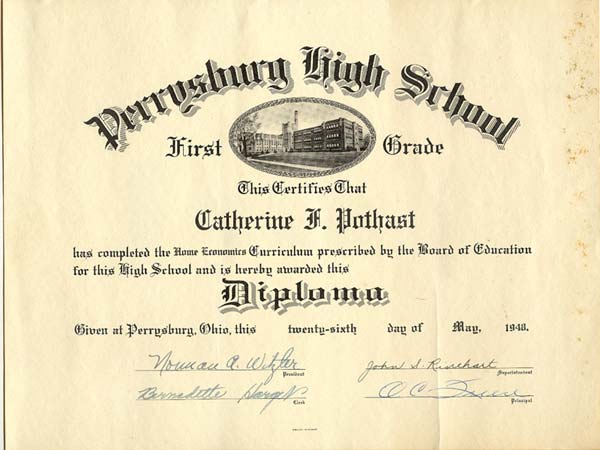 Perrysburg High School
First Grade
This Certifies That
Catherine F. Pothast
has completed the Home Economics Curriculum prescribed by the Board of Education
for this High School and is hereby awarded this
Diploma
Given at Perrysburg, Ohio, this twenty-sixth day of May, 1948.
Norman A. Witzler John S. Rinehart
President Superintendent
Bernadette
Clerk Principal